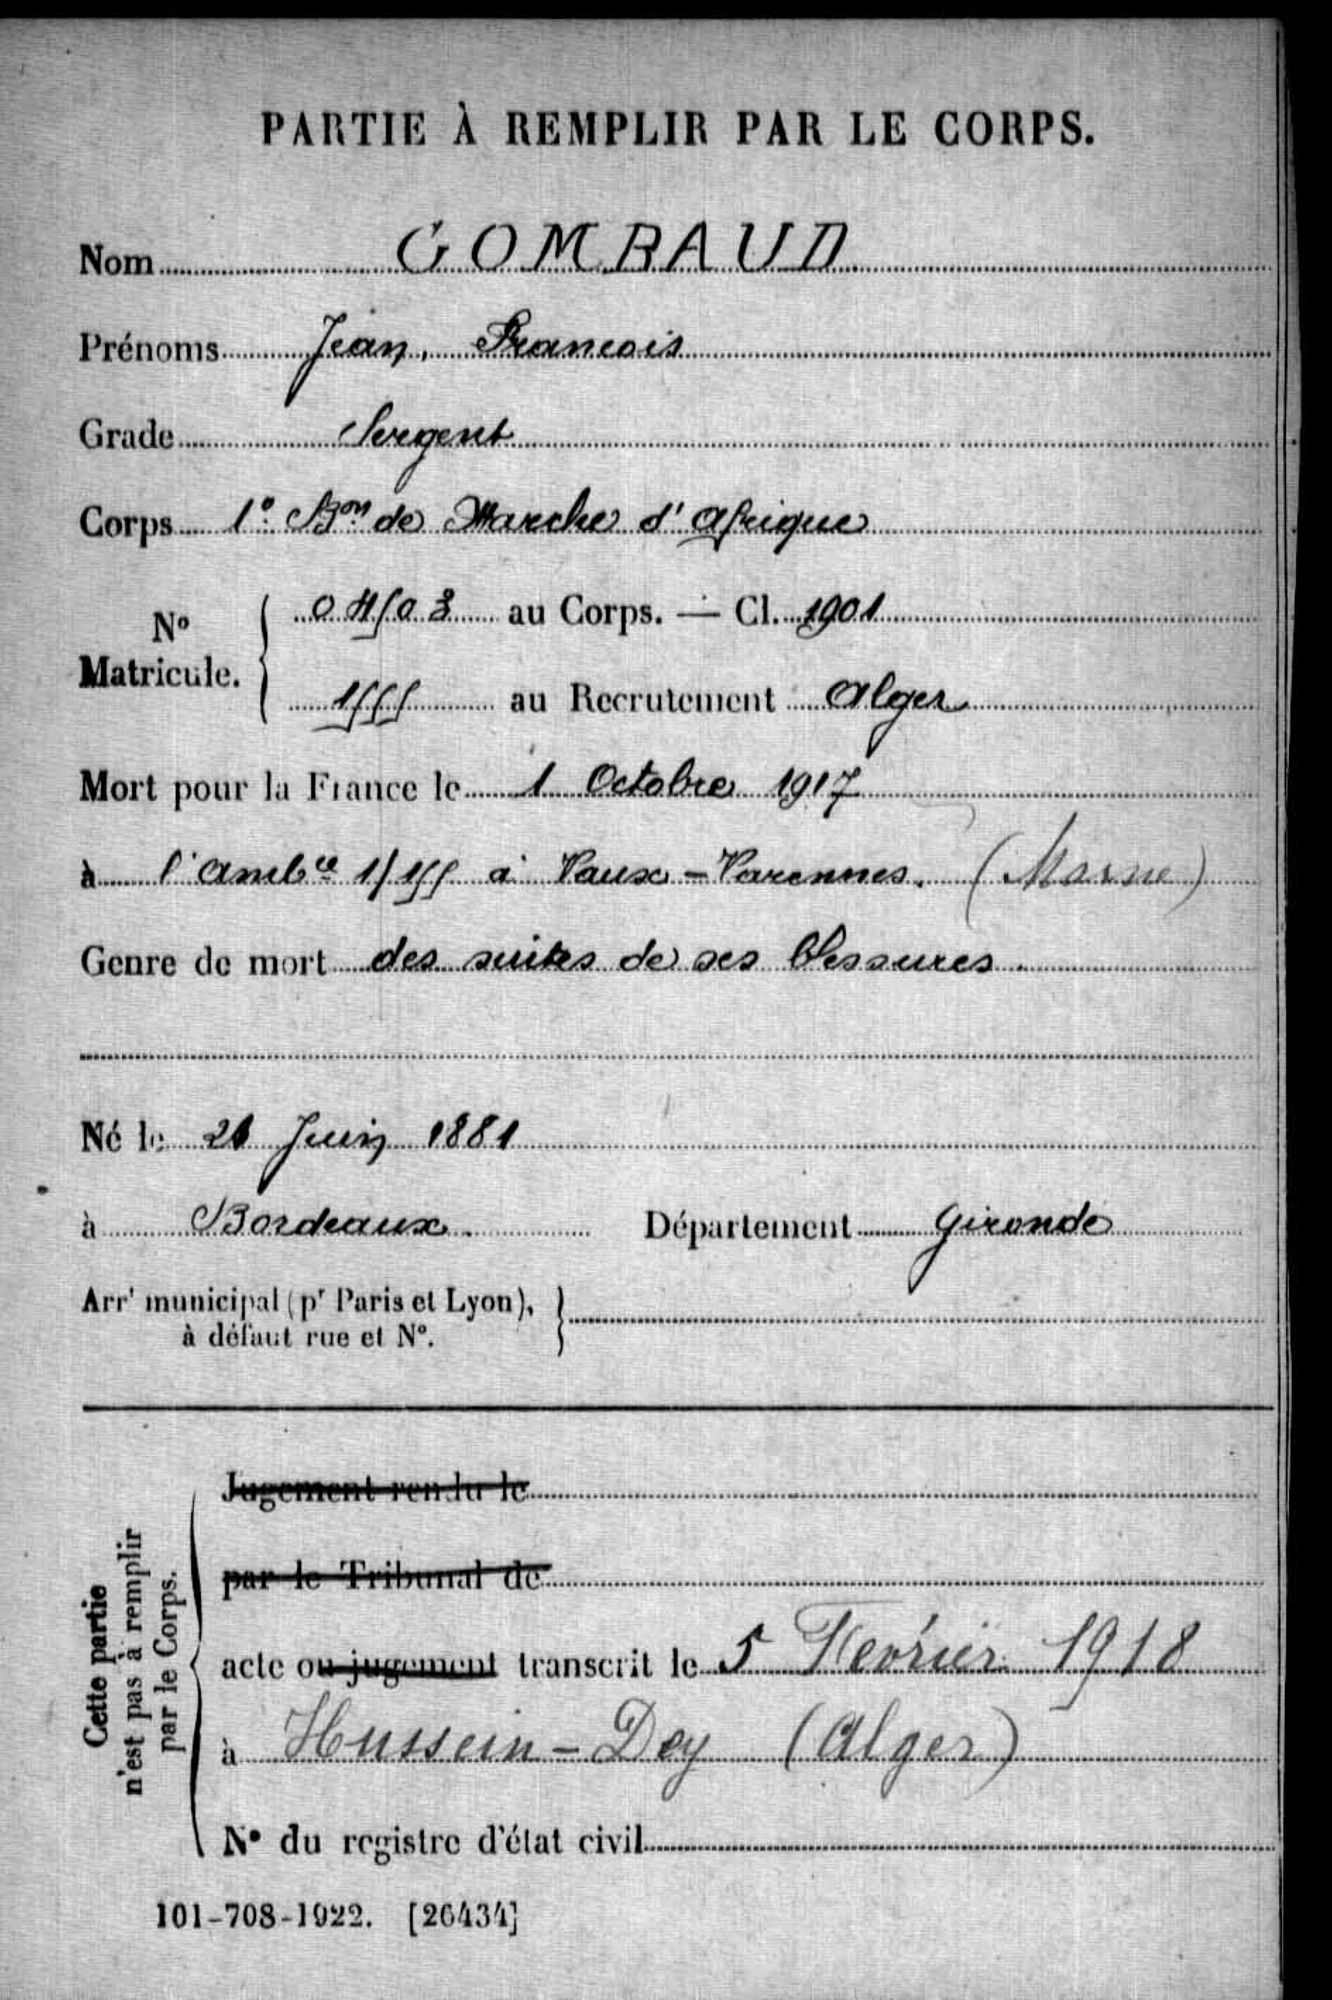 PARTIE À REMPLIR PAR LE CORPS.
Nom GOMBAUD
Prénoms Jean, Francois
Grade Sergent
Corps 1º Bon de Marche d'Afrique
Nº Matricule. 04503 au Corps. — Cl. 1901
1555 au Recrutement Alger
Mort pour la France le 1 Octobre 1917
à l'Ambce 1/155 à Vaux-Varennes. (Marne)
Genre de mort des suites de ses blessures.
Né le 21 Juin 1881
à Bordeaux. Département Gironde
Arrt municipal (pr Paris et Lyon),
à défaut rue et Nº.
Cette partie
n'est pas à remplir
par le Corps.
Jugement rendu le
par le Tribunal de
acte ou jugement transcrit le 5 Fevrier 1918
à Hussein-Dey (Alger)
Nº du registre d'état civil
101-708-1922. [26434]